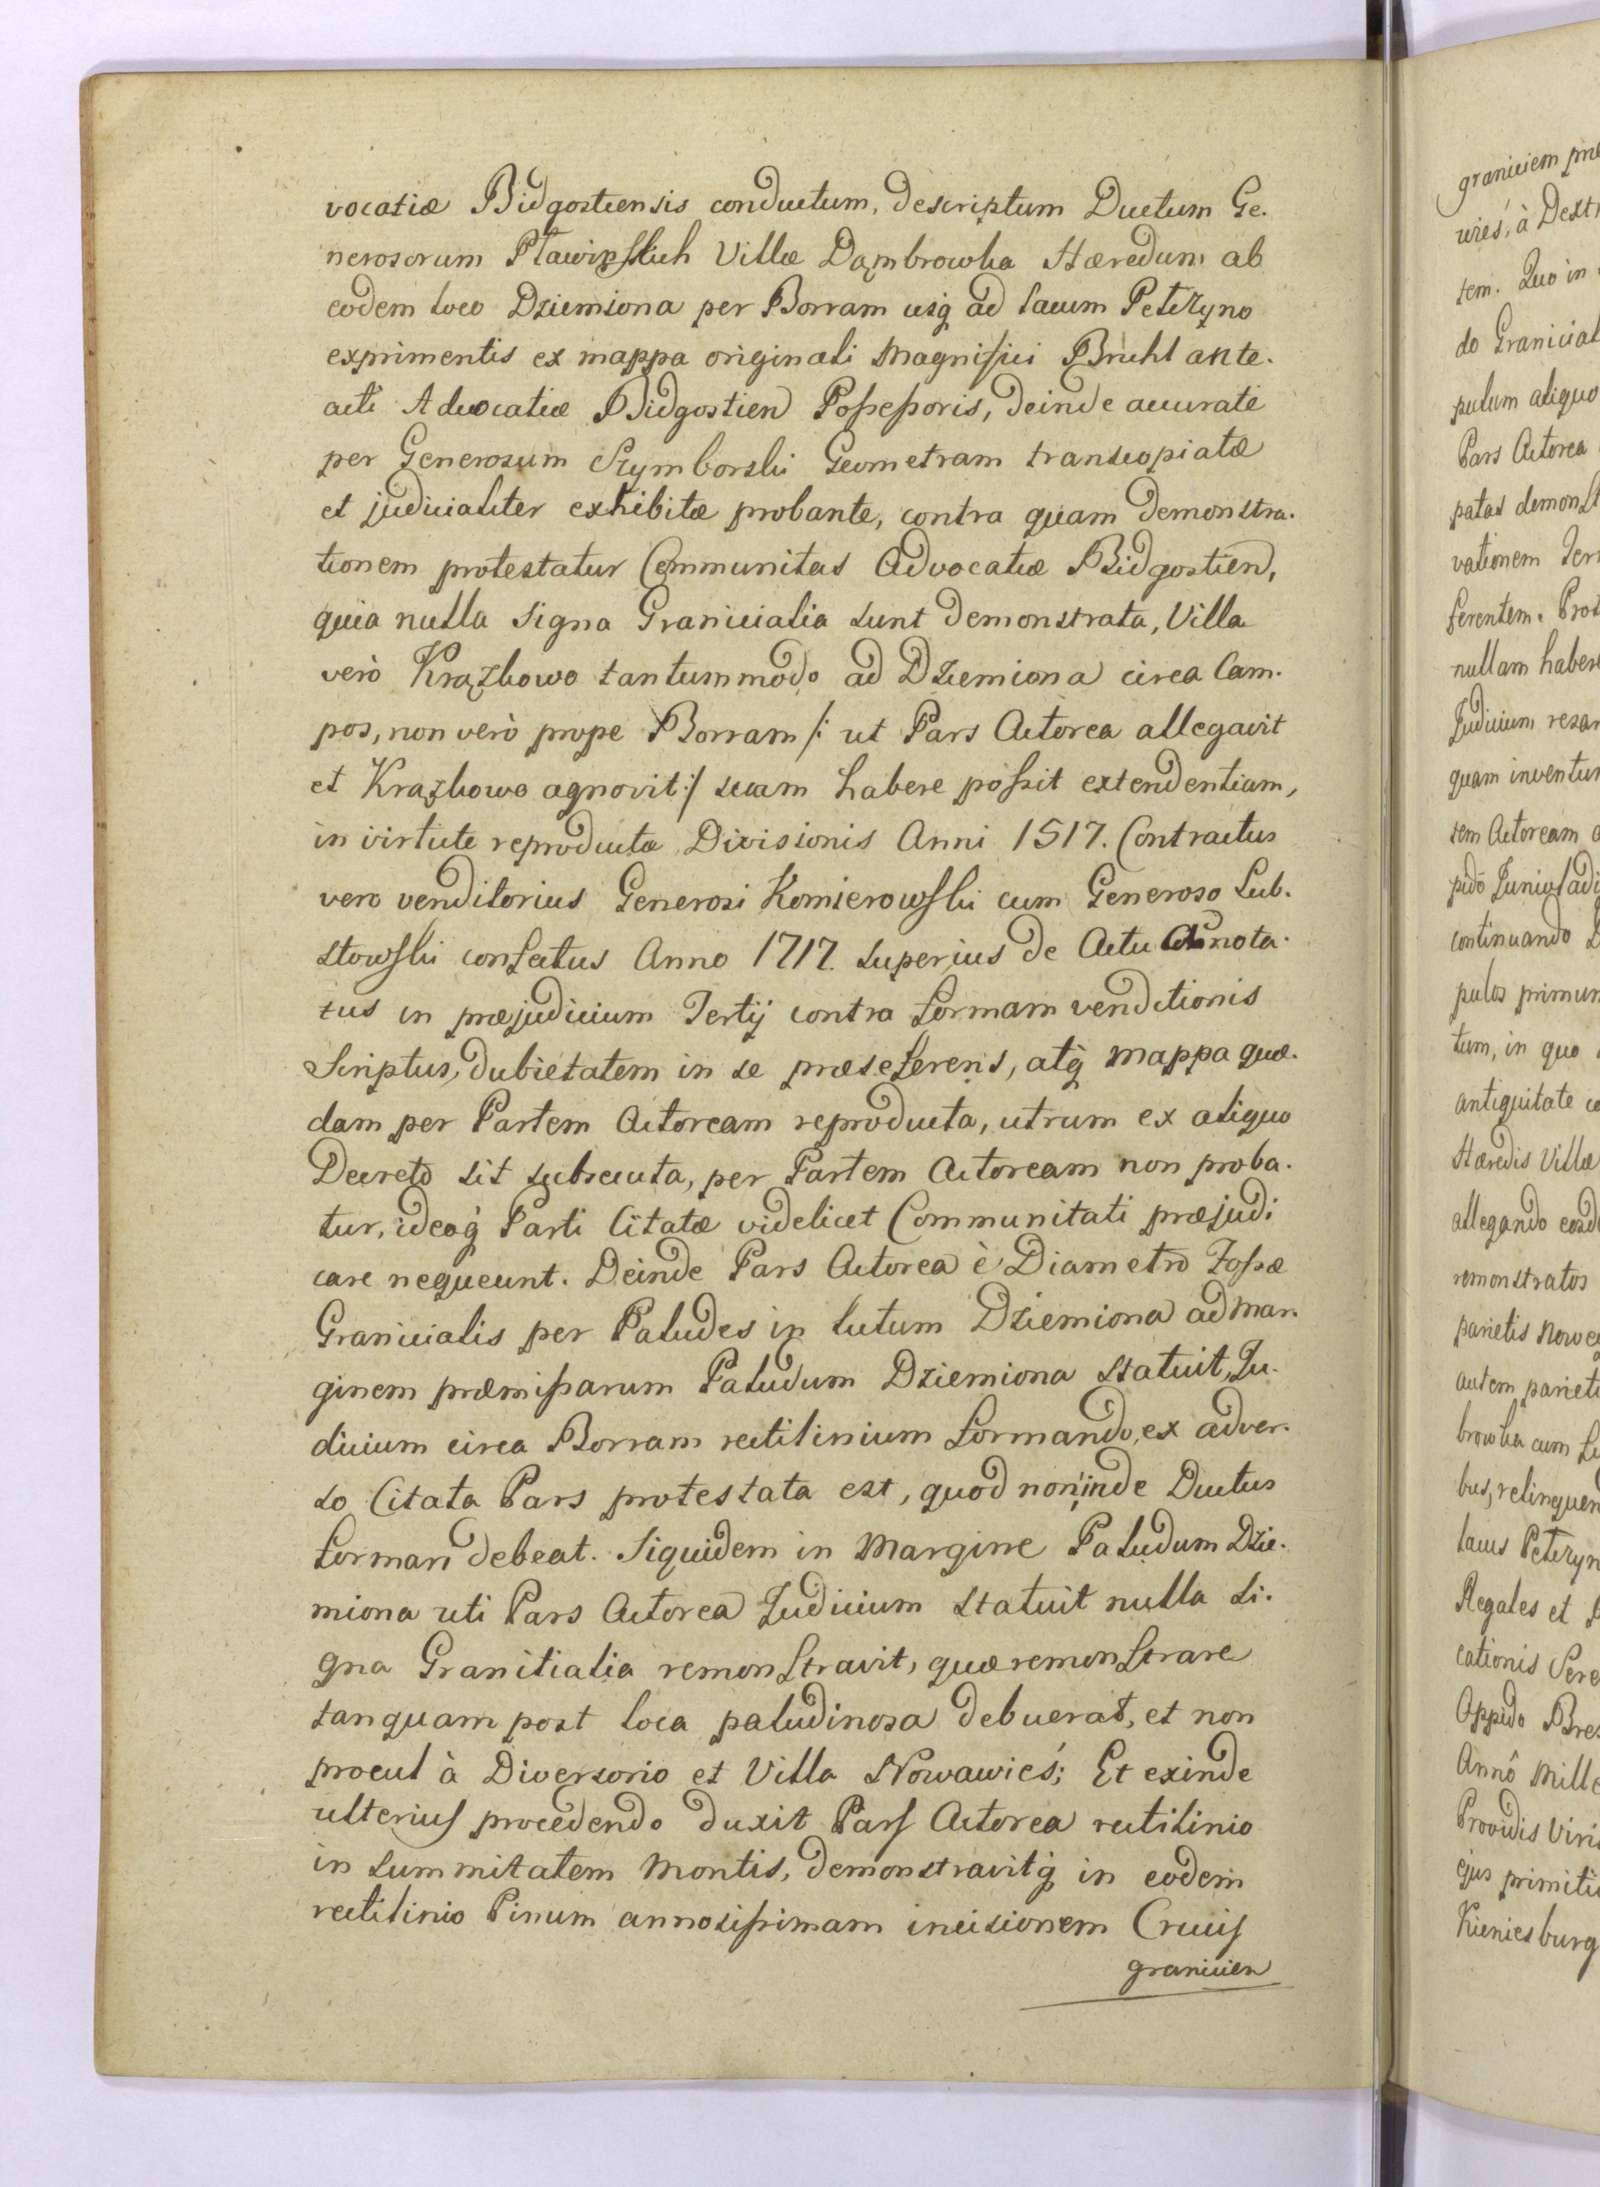 vocatiæ Bidgostiensis conductum, descriptum Ductum Ge.
nerosorum Pławinskich Villæ Dąmbrowka Hæredum ab
eodem loco Dziemiona per Borram usq́ ad lacum Peterzyno
exprimentis ex mappa originali Magnifici Bruhl ante.
acti Advocatiæ Bidgostien Possessoris, deinde accurate
per Generosum Szymborski Geometram transcopiatæ
et judicialiter exhibitæ probante, contra quam demonstra.
tionem protestatur Communitas Advocatiæ Bidgostien,
quia nulla signa Granicialia sunt demonstrata, Villa
verò Krążkowo tantummodo ad Dziemiona circa Cam.
pos, non verò prope Borram /: ut Pars Actorea allegavit
et Krążkowo agnovit :/ suam habere possit extendentiam,
in virtute reproducta Divisionis Anni 1517. Contractus
vero venditorius Generosi Komierowski cum Generoso Lub.
stowski confectus Anno 1717. superius de Actu Adnota.
tus in præjudicium Tertij contra formam venditionis
Scriptus, dubietatem in se præseferens, atq́ mappa quæ.
dam per Partem Actoream reproducta, utrum ex aliquo
Decreto sit subsecuta, per Partem Actoream non proba.
tur, ideoq́ Parti Citatæ videlicet Communitati præjudi
care nequeunt. Deinde Pars Actorea è Diametro Fossæ
Granicialis per Paludes in lutum Dziemiona ad mar.
ginem præmissarum Paludum Dziemiona statuit, Ju.
dicium circa Borram rectilinium formando, ex adver.
so Citata Pars protestata est, quod non inde Ductus
formari debeat. Siquidem in Margine Paludum Dzie.
miona uti Pars Actorea Judicium statuit nulla si.
gna Granitialia remonstravit, quæ remonstrare
tanquam post loca paludinosa debuerat, et non
procul à Diversorio et Villa Nowawieś; Et exinde
ulterius procedendo duxit Pars Actorea rectilinio
in summitatem Montis, demonstravitq́ in eodem
rectilinio Pinum annosissimam incisionem Crucis
granicien
graniciem præ
wieś, à Dext
tem. Quo in
do Granicial
pulum aliquo
Pars Actorea
patas demonst
vationem
ferentem. Prot
nullam haber
Judicium
quam inventu
tem Actoream
continuando
pulos primum
tum, in quo
antiquitate
Hæredis Villæ
allegando
remonstratos
parietis
autem pariet
browka cum
bus, relinquen
lacus Peterzyn
Regales et
cationis Sere
Oppido
Annô Mille
Providis Viris
ejus primiti
Kieniesburg